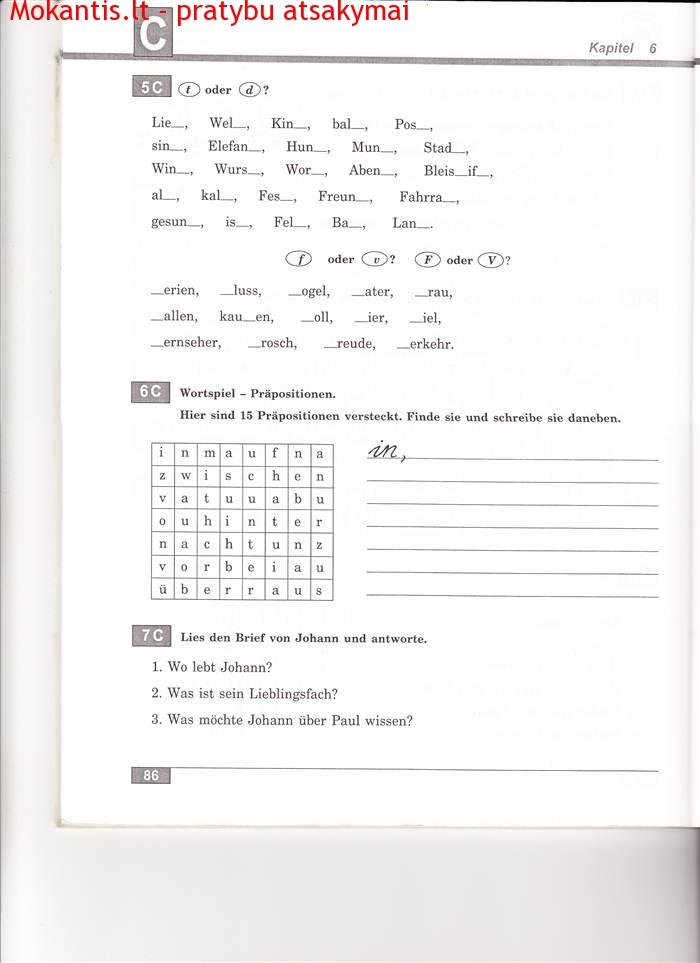 Mokantis.lt - pratybu atsakymai
C
Kapitel 6
5 C t oder d ?
Lie__, Wel__, Kin__, bal__, Pos__,
sin__, Elefan__, Hun__, Mun__, Stad__,
Win__, Wurs__, Wor__, Aben__, Bleis__if__,
al__, kal__, Fes__, Freun__, Fahrra__,
gesun__, is__, Fel__, Ba__, Lan__.
f oder v ? F oder V ?
__erien, __luss, __ogel, __ater, __rau,
__allen, kau__en, __oll, __ier, __iel,
__ernseher, __rosch, __reude, __erkehr.
6 C Wortspiel – Präpositionen.
Hier sind 15 Präpositionen versteckt. Finde sie und schreibe sie daneben.
i n m a u f n a
z w i s c h e n
v a t u u a b u
o u h i n t e r
n a c h t u n z
v o r b e i a u
ü b e r r a u s
in,
7 C Lies den Brief von Johann und antworte.
1. Wo lebt Johann?
2. Was ist sein Lieblingsfach?
3. Was möchte Johann über Paul wissen?
86